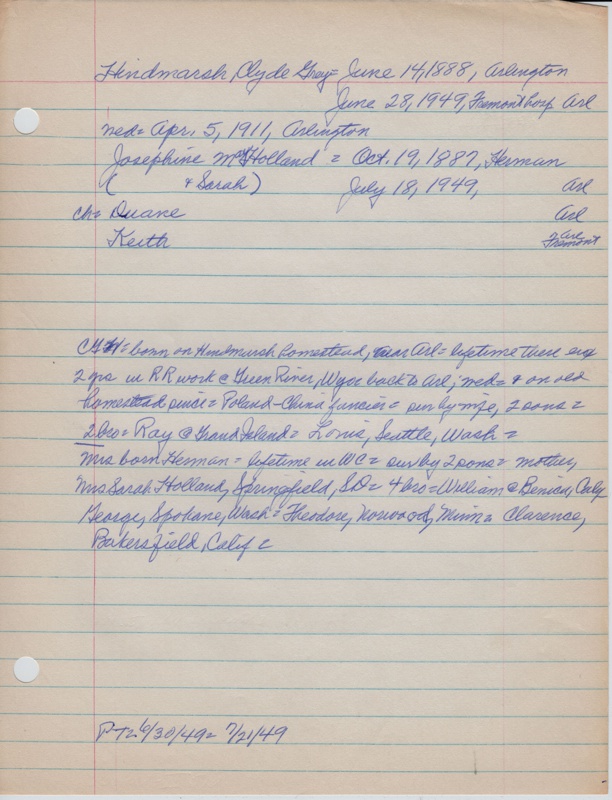 Hindmarsh, Clyde Grey = June 14, 1888, Arlington
June 28, 1949, Fremont hosp Arl
med = Apr. 5, 1911, Arlington
Josephine May Holland = Oct. 19, 1887, Herman
( & Sarah) July 18, 1949, Arl
ch = Duane Arl
Keith Arl
Fremont
CGH = born on Hindmarsh homestead, near Arl = lifetime there exc
2 yrs in RR work @ Green River, Wyo = back to Arl; med = & on old
homestead since = Poland-China fancier = sur by wife, 2 sons =
2 bro = Ray @ Grand Island = Louis, Seattle, Wash =
Mrs born Herman = lifetime in WC = sur by 2 sons = mother,
Mrs Sarah Holland, Springfield, SD = 4 bro = William @ Benicia, Calif
George, Spokane, Wash = Theodore, Norwood, Minn = Clarence,
Bakersfield, Calif =
PT = 6/30/49 = 7/21/49